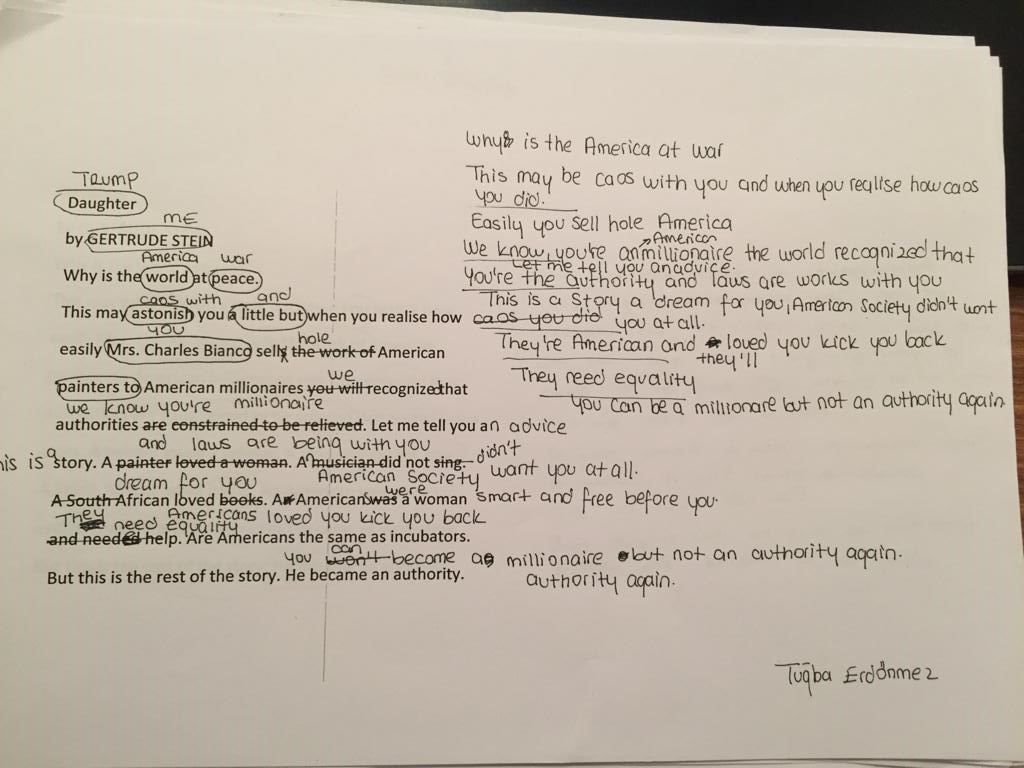 TRUMP
Daughter
ME
by GERTRUDE STEIN
America war
Why is the world at peace.
caos with and
This may astonish you a little but when you realise how
you hole
easily Mrs. Charles Bianco sells the work of American
we
painters to American millionaires you will recognize that
we know you're millionaire
authorities are constrained to be relieved. Let me tell you an advice
and laws are being with you didn't
his is a story. A painter loved a woman. A musician did not sing.
dream for you American Society want you at all.
were
A South African loved books. An American was a woman smart and free before you.
They Americans loved you kick you back
need equality
and needed help. Are Americans the same as incubators.
you can won't become a millionaire but not an authority again.
But this is the rest of the story. He became an authority. authority again.
why is the America at war
This may be caos with you and when you realise how caos
you did.
Easily you sell hole America
American
We know, you're an millionaire the world recognized that
Let me tell you an advice.
You're the authority and laws are works with you
This is a Story a dream for you, American Society didn't want
caos you did you at all.
They're American and loved you kick you back
they'll
They need equality
you can be a millionare but not an authority again
Tuğba Erdönmez